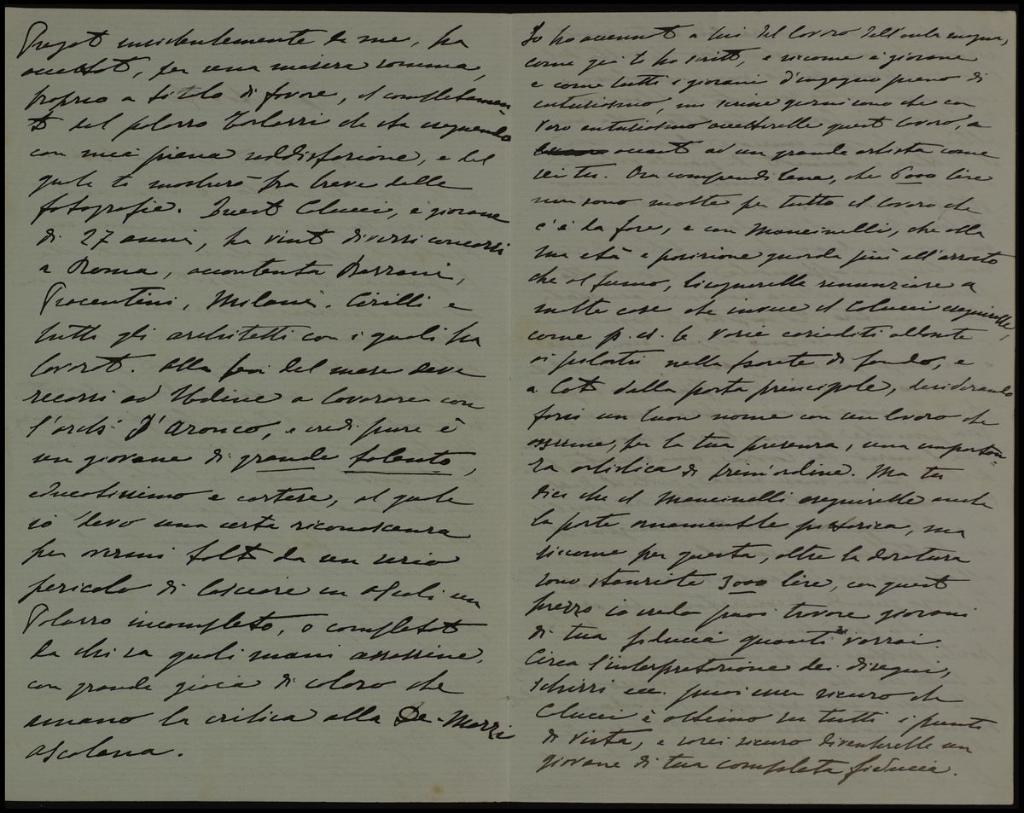 Pregato incidentemente da me, ha
accettato, per una misera somma,
proprio a titolo di favore, il completamen-
to del plazzo che sta eseguendo
con mia piena soddisfazione, e del
quale ti mostrerò fra breve delle
fotografie. Questo Clucci, è giovane
di 27 anni, ha vinto diversi concorsi
a Roma, accontenta Bazzani,
Piacentini, Milani, Cirilli e
tutti gli architetti con i quali ha
lavorato. Alla fine del mese deve
recarsi ad Udine a lavorare con
l'arch: D'Aronco, e credi pure è
un giovane di grande talento,
educatissimo e cortese, al quale
io devo una certa riconoscenza
per avermi tolto da un serio
pericolo di lasciare in Ascoli un
Plazzo incompleto, o completato
da chi sa quali mani assassine,
con grande gioia di coloro che
amano la critica alla De-Marzi
ascolana.
Io ho accennato a lui del lavoro dell'aula magna,
come già ti ho scritto, e siccome è giovane
e come tutti i giovani d'ingegno pieno di
entusiasmo, mi scrive che con
vero entusiasmo accetterebbe questo lavoro, a
accanto ad un grande artista come
sei tu. Ora comprendi bene, che 6000 lire
non sono molte per tutto il lavoro che
c'è da fare, e con Mancinelli, che alla
sua età e posizione guarda più all'arrosto
che al fumo, bisognerebbe rinunziare a
molte cose che invece il Clucci eseguirebbe,
come p. es. le varie
ai pilastri nella parete di fondo, e
a lato della porta principale, desiderando
farsi un buon nome con un lavoro che
assume, per la tua presenza, una importan-
za artistica di prim'ordine. Ma tu
dici che il Mancinelli eseguirebbe anche
la parte ornamentale pittorica, ma
siccome per questa, oltre la doratura
sono stanziate 3000 lire, con questo
prezzo io credo puoi trovare giovani
di tua fiducia quanti ne vorrai.
Circa l'interpretazione dei disegni,
schizzi ecc. puoi esser sicuro che
Clucci è ottimo su tutti i punti
di vista, e sarei sicuro diventerebbe un
giovane di tua completa fiducia.